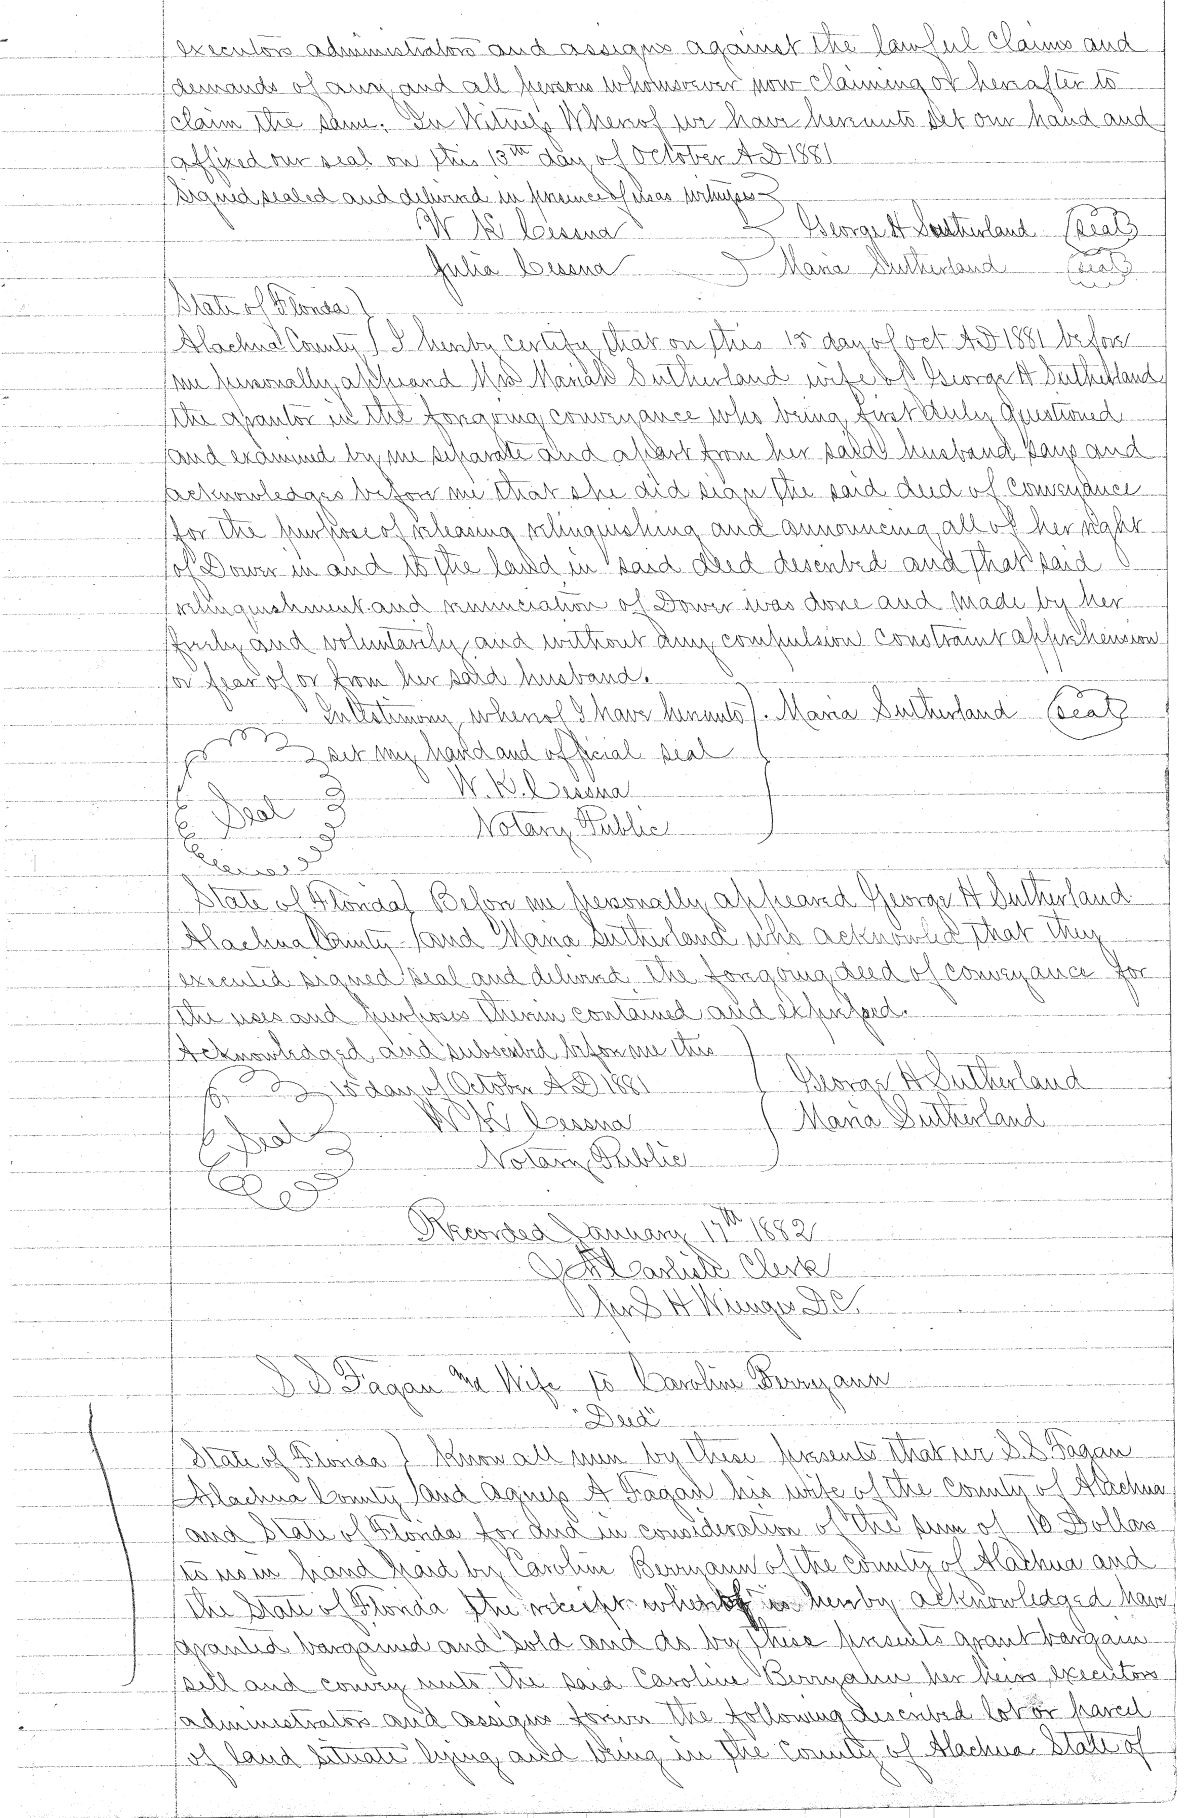 executors administrators and assigns against the lawful claims and
demands of any and all persons whomsoever now claiming or hereafter to
claim the same. In Witness Whereof we have hereunto set our hand and
affixed our seal on this 13th day of October A.D 1881
Signed sealed and delivered in presence of us as witnesses
W K Cessna George H Sutherland (seal)
Julia Cessna Maria Sutherland (seal)
State of Florida }
Alachua County } I hereby certify that on this 15 day of oct A.D 1881 before
me personally appeared Mrs Mariah Sutherland wife of George H Sutherland
the grantor in the foregoing conveyance who being first duly questioned
and examined by me separate and apart from her said husband says and
acknowledges before me that she did sign the said deed of conveyance
for the purpose of releasing relinquishing and announcing all of her right
of Dower in and to the land in said deed described and that said
relinquishment and renunciation of Dower was done and made by her
freely and voluntarily and without any compulsion constraint apprehension
or fear of or from her said husband.
In Testimony whereof I have hereunto } . Maria Sutherland (seal)
set my hand and official seal
W. K. Cessna
Seal
Notary Public
State of Florida } Before me personally appeared George H Sutherland
Alachua County } and Maria Sutherland who acknowled that they
executed signed seal and delivered the foregoing deed of conveyance for
the uses and purposes therein contained and expressed.
Acknowledged and subscribed before me this
15 day of October A.D 1881 George H Sutherland
W K Cessna Maria Sutherland
Seal
Notary Public
Recorded January 17th 1882
J A Carlisle Clerk
per S H Wienges D.C.
S S Fagan and Wife to Caroline Berryann
"Deed"
State of Florida } Know all men by these presents that we S.S Fagan
Alachua County } and Agness A Fagan his wife of the county of Alachua
and State of Florida for and in consideration of the sum of 10 Dollars
to us in hand paid by Caroline Berryann of the county of Alachua and
the State of Florida the receipt whereof is hereby acknowledged have
granted bargained and sold and do by these presents grant bargain
sell and convey unto the said Caroline Berryann her heirs executors
administrators and assigns forever the following described lot or parcel
of land situate lying and being in the county of Alachua State of